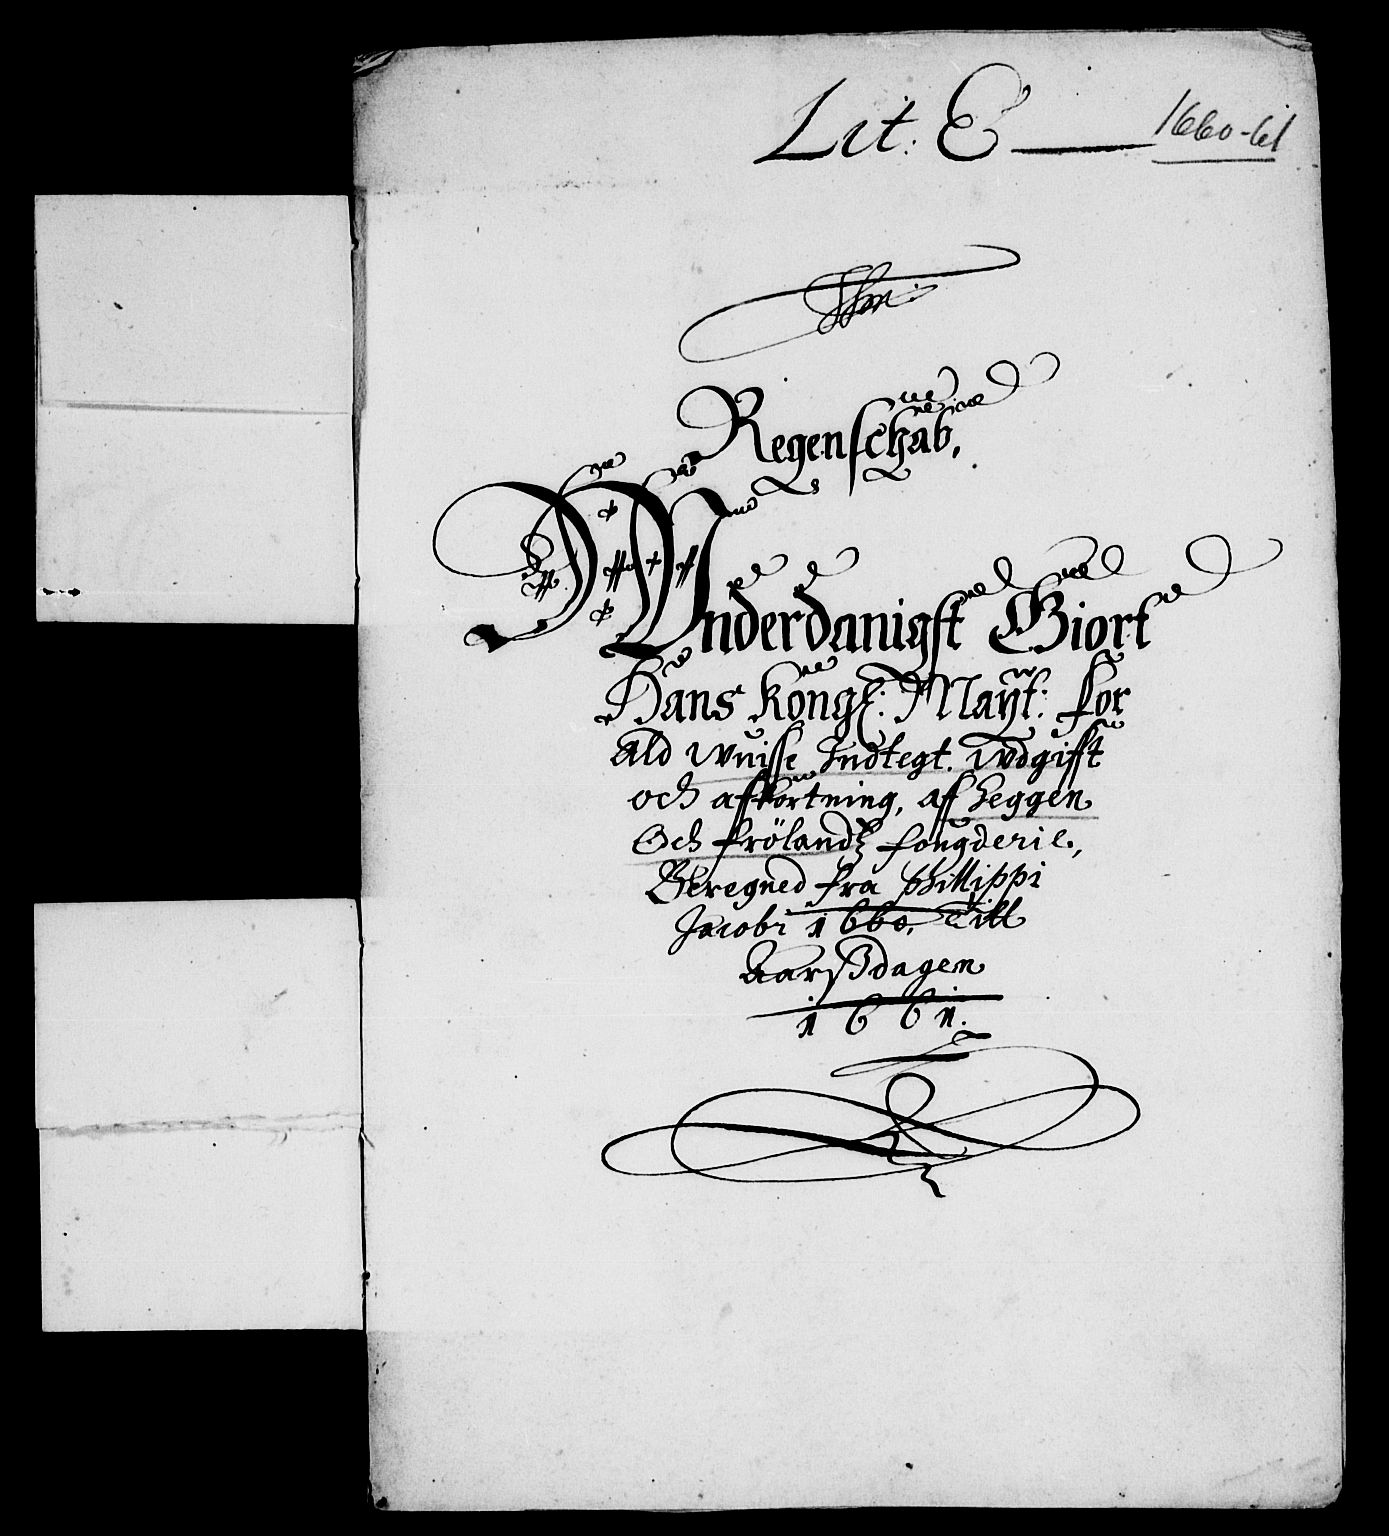 Lit: E 1660-61
Regenschab,
Wnderdanigst Giort
Hans Kongl: Mayt: for
ald wuisse Indtegt. wdgifft
och affkortning, aff Heggen
Och frölandtz fougderie,
Beregned fra Phillippi
Jacobi 1660. Till
Aarßdagen
1661.